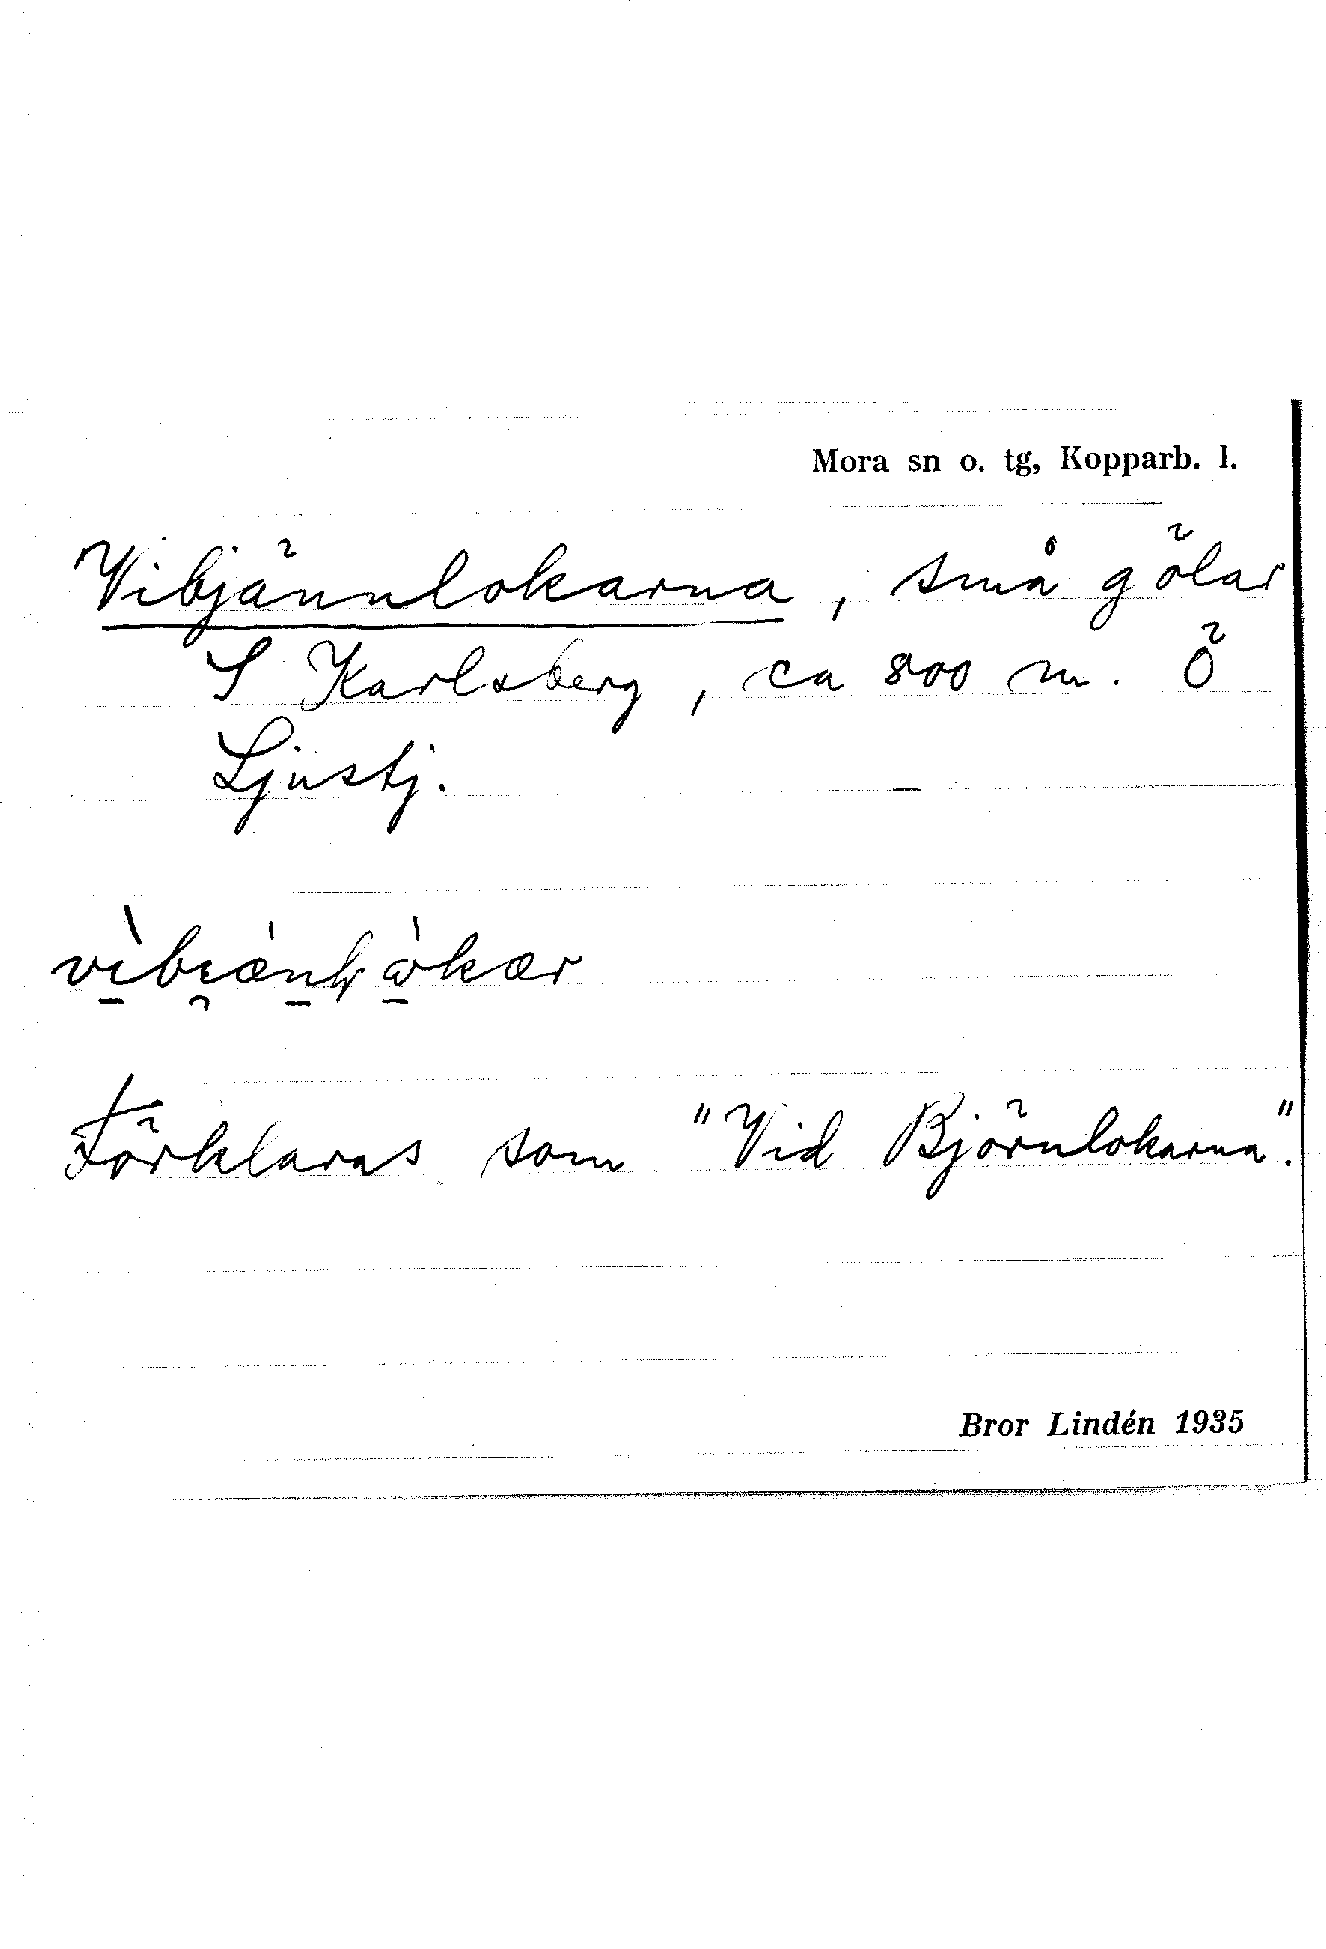 Mora sn o. tg, Kopparb. l.
Vibjännlokarna, små gölar
S Karlsberg, ca 800 m. Ö
Ljustj.
Förklaras som "Vid Björnlokarna".
Bror Lindén 1935